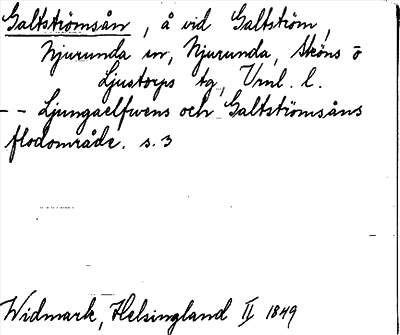 Galtströmsån, å vid Galtström,
Njurunda sn, Njurunda, Sköns o
Ljustorps tg, Vml. l.
-- Ljungaelfvens och Galtströmsåns
flodområde. s. 3
Widmark, Helsingland II 1849